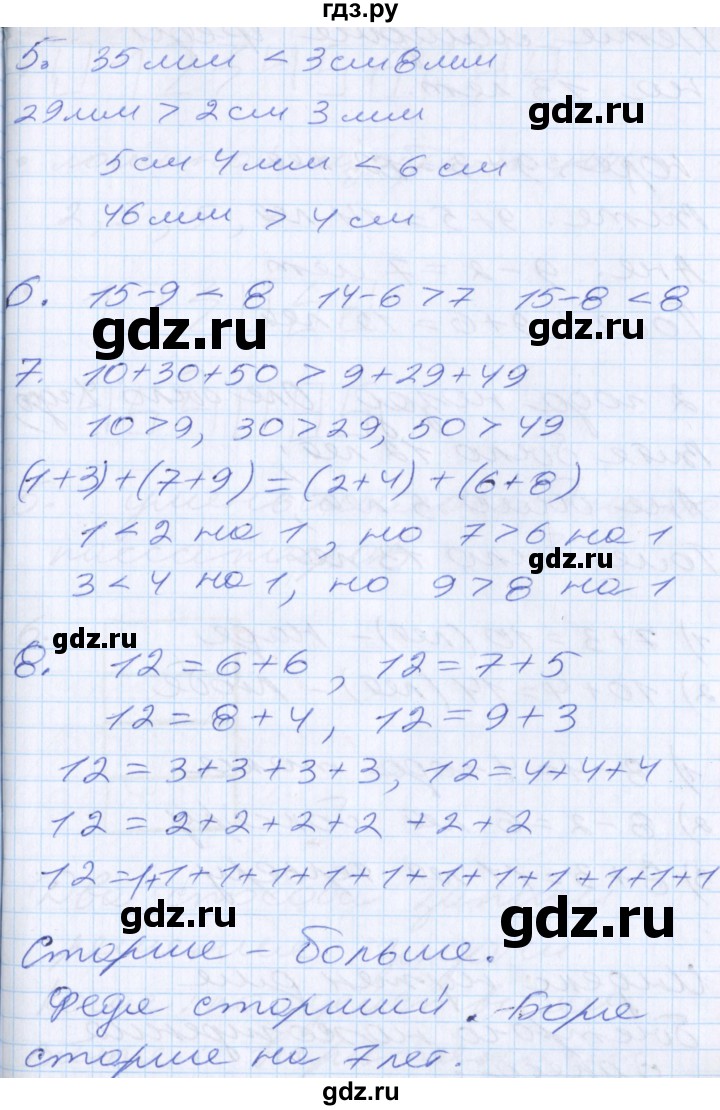 гдз.ру
5. 35 мм < 3 см 8 мм
29 мм > 2 см 3 мм
gdz.ru
5 см 4 мм < 6 см
46 мм > 4 см
gdz.ru
6. 15-9 < 8 14-6 > 7 15-8 < 8
gdz.ru
gdz.ru
7. 10+30+50 > 9+29+49
10>9, 30>29, 50>49
(1+3)+(7+9)=(2+4)+(6+8)
1<2 на 1, но 7>6 на 1
gdz.ru
3<4 на 1, но 9>8 на 1
gdz.ru
8. 12=6+6, 12=7+5
12=8+4, 12=9+3
gdz.ru
12=3+3+3+3, 12=4+4+4
12=2+2+2+2+2+2
12=1+1+1+1+1+1+1+1+1+1+1+1
gdz.ru
gdz.ru
Старше - больше.
Федя старший. Боря
старше на 7 лет.
gdz.ru